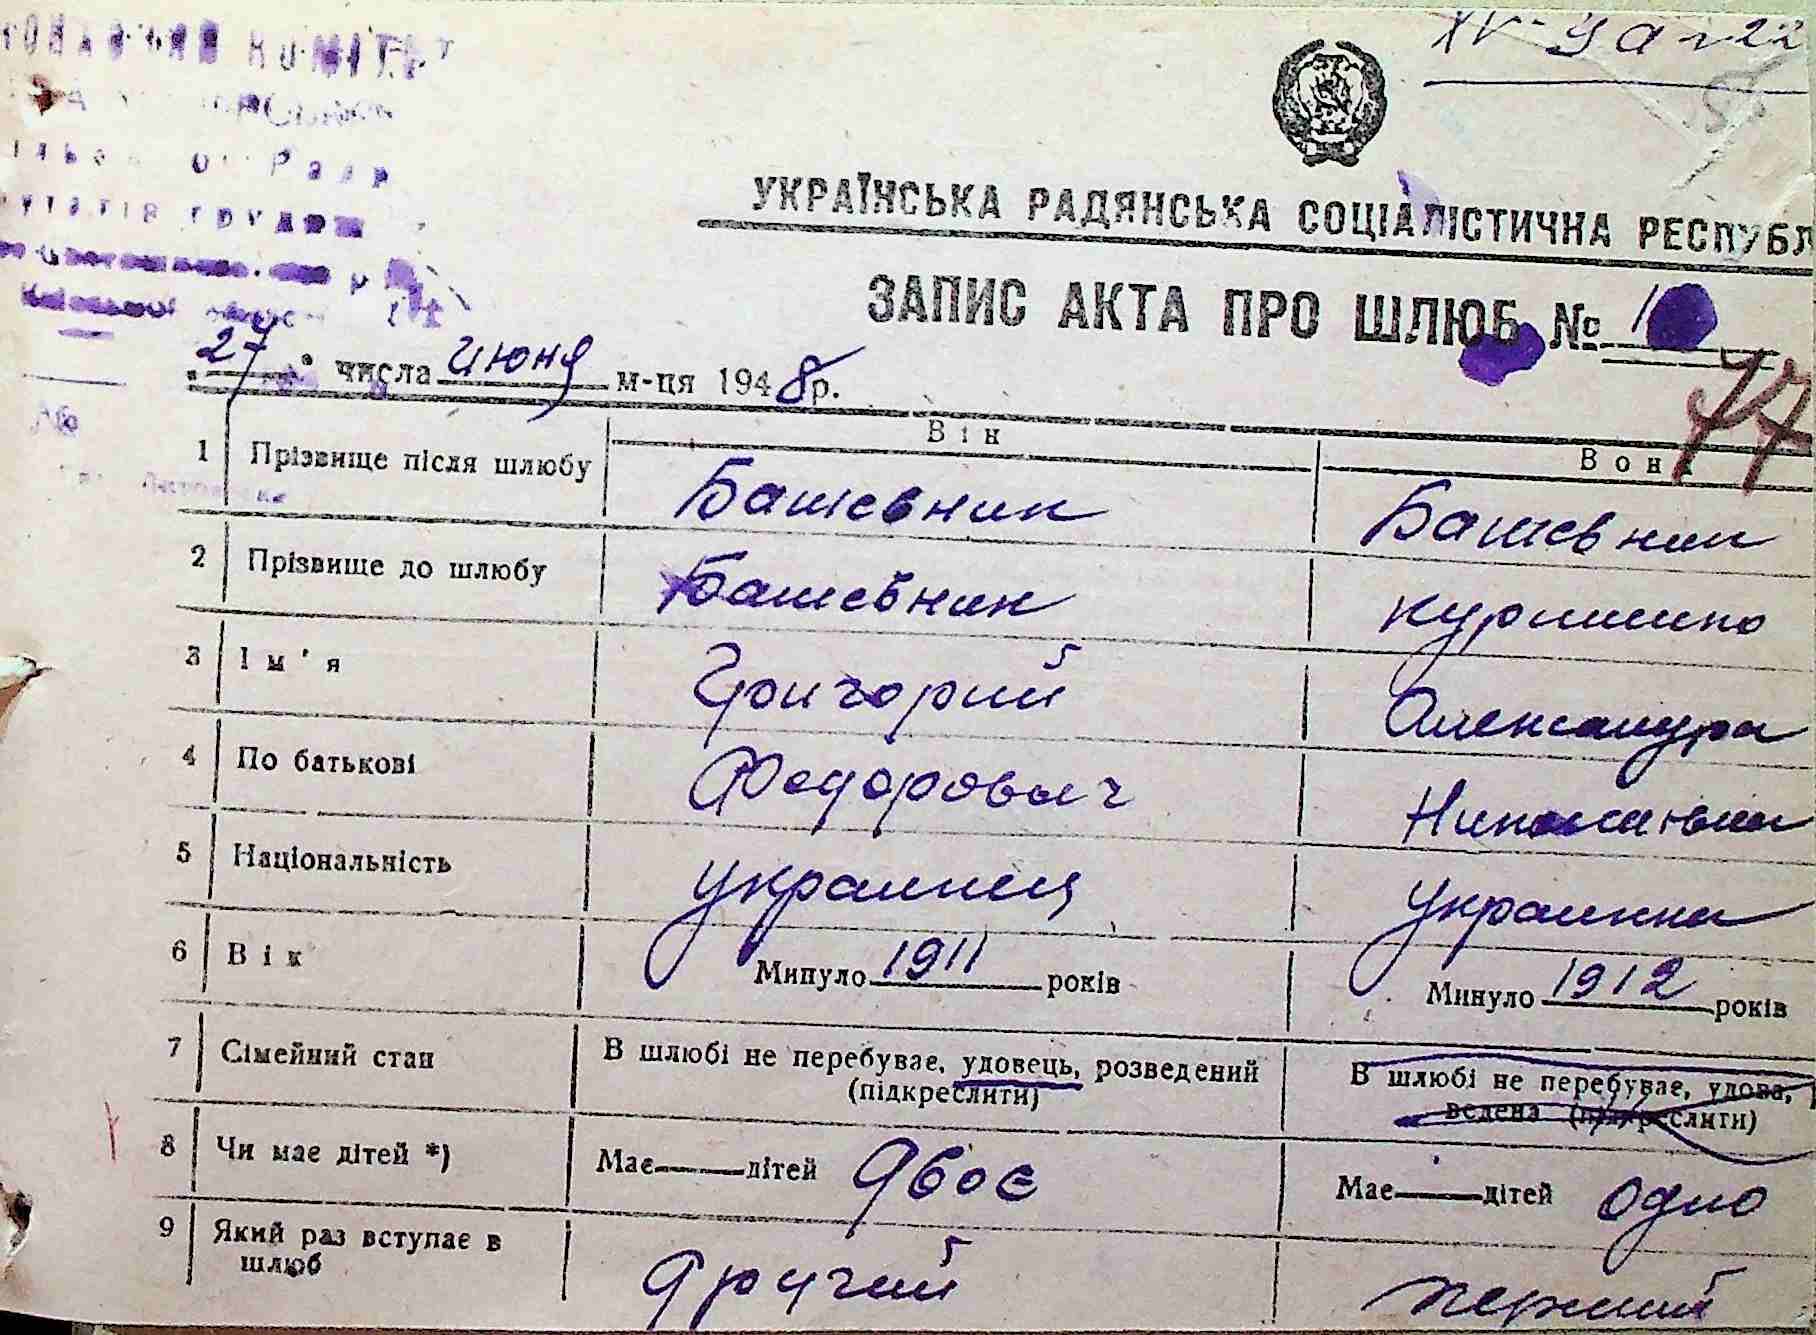 УКРАЇНСЬКА РАДЯНСЬКА СОЦІАЛІСТИЧНА РЕСПУБЛ
ЗАПИС АКТА ПРО ШЛЮБ № 1
77
"27" числа июня м-ця 1948 р.
Він Вона
1 Прізвище після шлюбу Башевник Башевник
2 Прізвище до шлюбу Башевник
3 Ім'я Григорий Александра
4 По батькові Федорович
5 Національність украинец украинка
6 Вік Минуло 1911 років Минуло 1912 років
7 Сімейний стан В шлюбі не перебуває, удовець, розведений В шлюбі не перебуває, удова,
(підкреслити) ведена (підкреслити)
8 Чи має дітей *) Має дітей двоє Має дітей одно
9 Який раз вступає в
шлюб другий перший